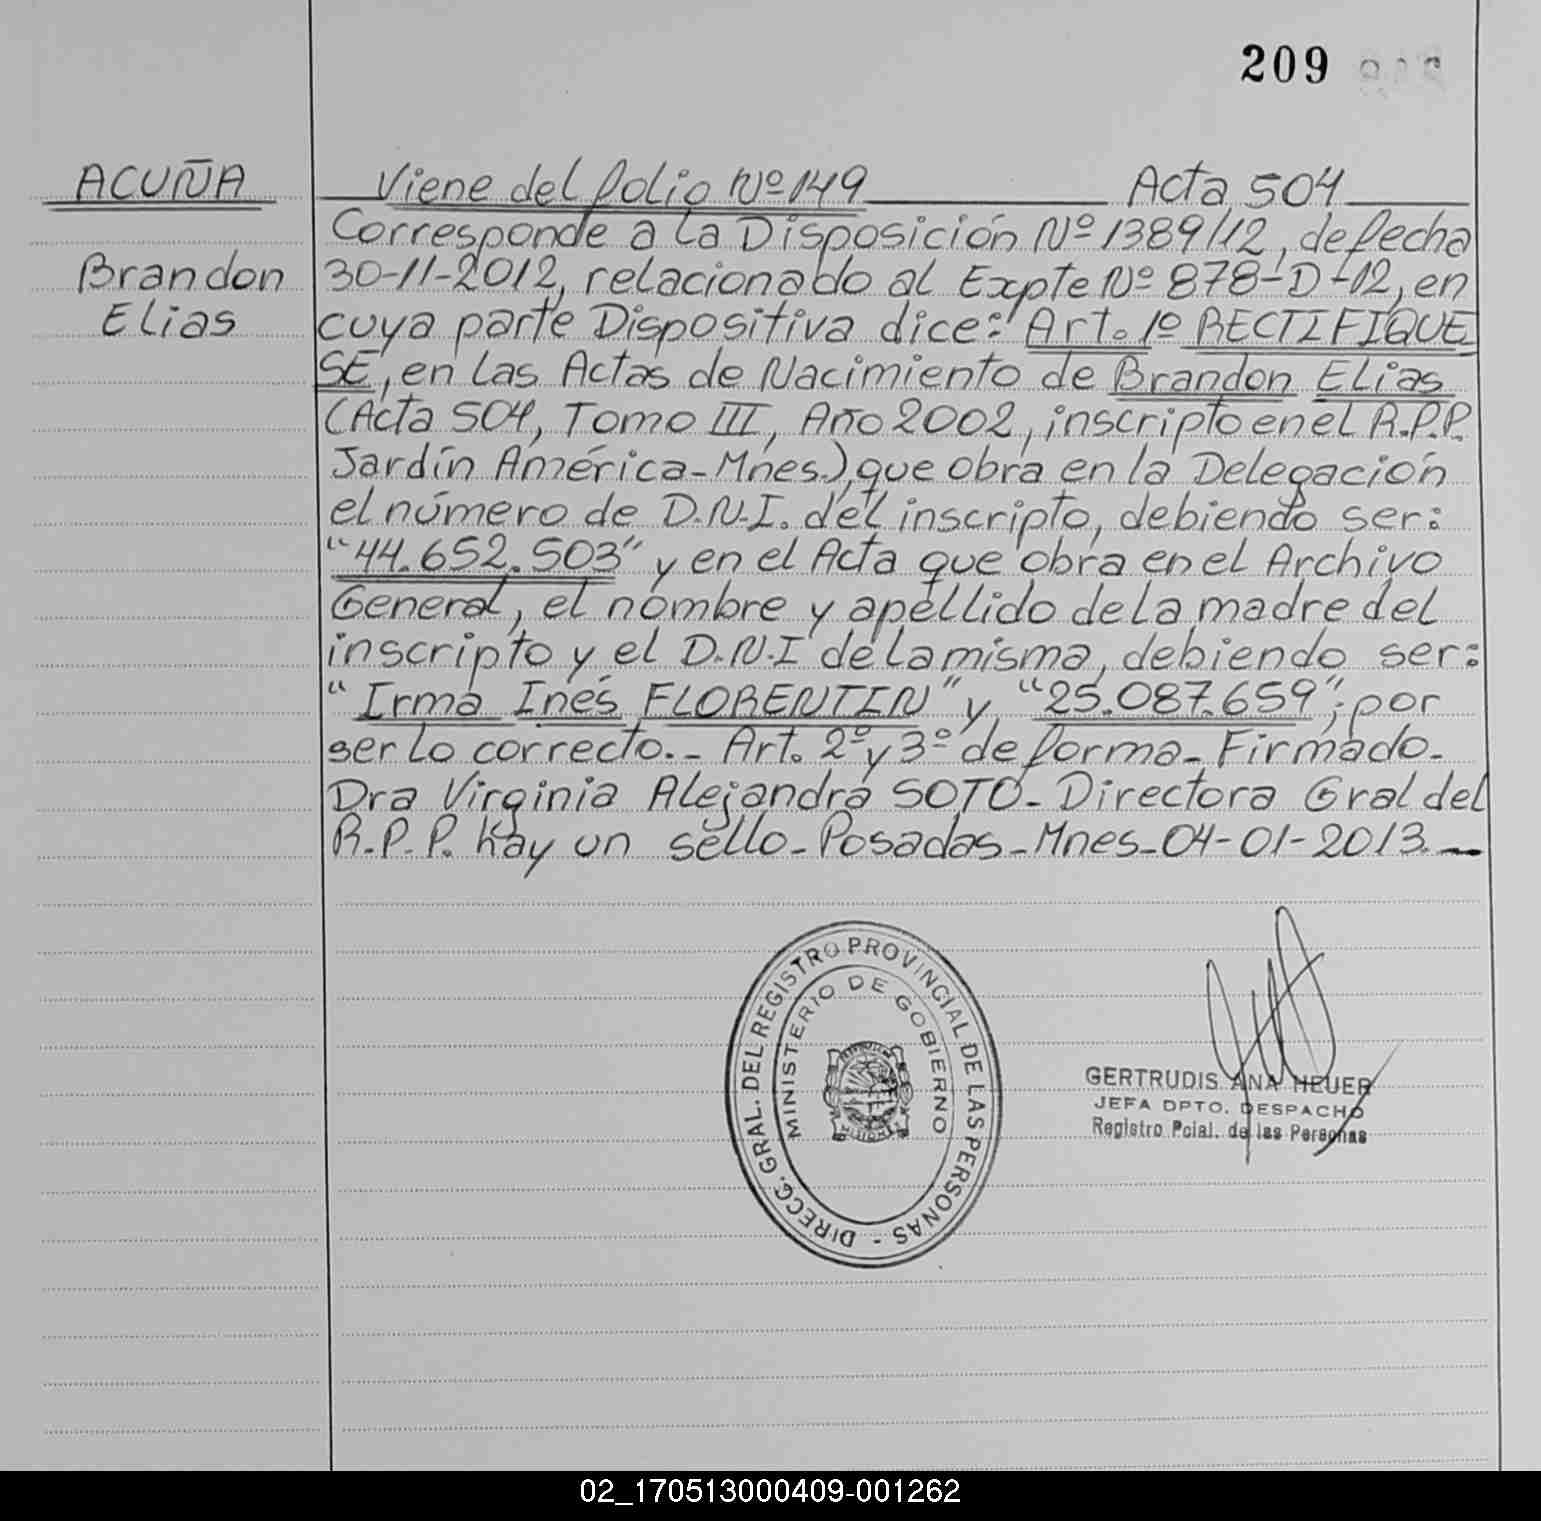 209
ACUÑA
Brandon
Elias
Viene del folio Nº 149 Acta 504
Corresponde a la Disposición Nº 1389/12, de fecha
30-11-2012, relacionado al Expte Nº 878-D-12, en
cuya parte Dispositiva dice: Art. 1º RECTIFIQUE
SE, en las Actas de Nacimiento de Brandon Elias
(Acta 504, Tomo III, Año 2002, inscripto en el R.P.P.
Jardín América-Mnes.), que obra en la Delegación
el número de D.N.I. del inscripto, debiendo ser:
"44.652.503" y en el Acta que obra en el Archivo
General, el nombre y apellido de la madre del
inscripto y el D.N.I de la misma, debiendo ser:
"Irma Inés FLORENTIN" y "25.087.659"; por
ser lo correcto.- Art. 2º y 3º de forma- Firmado-
Dra Virginia Alejandra SOTO- Directora Gral del
R.P.P. Hay un sello- Posadas- Mnes- 04-01-2013.-
DIRECC. GRAL. DEL REGISTRO PROVINCIAL DE LAS PERSONAS -
MINISTERIO DE GOBIERNO
GERTRUDIS ANA HEUER
JEFA DPTO. DESPACHO
Registro Pcial. de las Personas
02_170513000409-001262